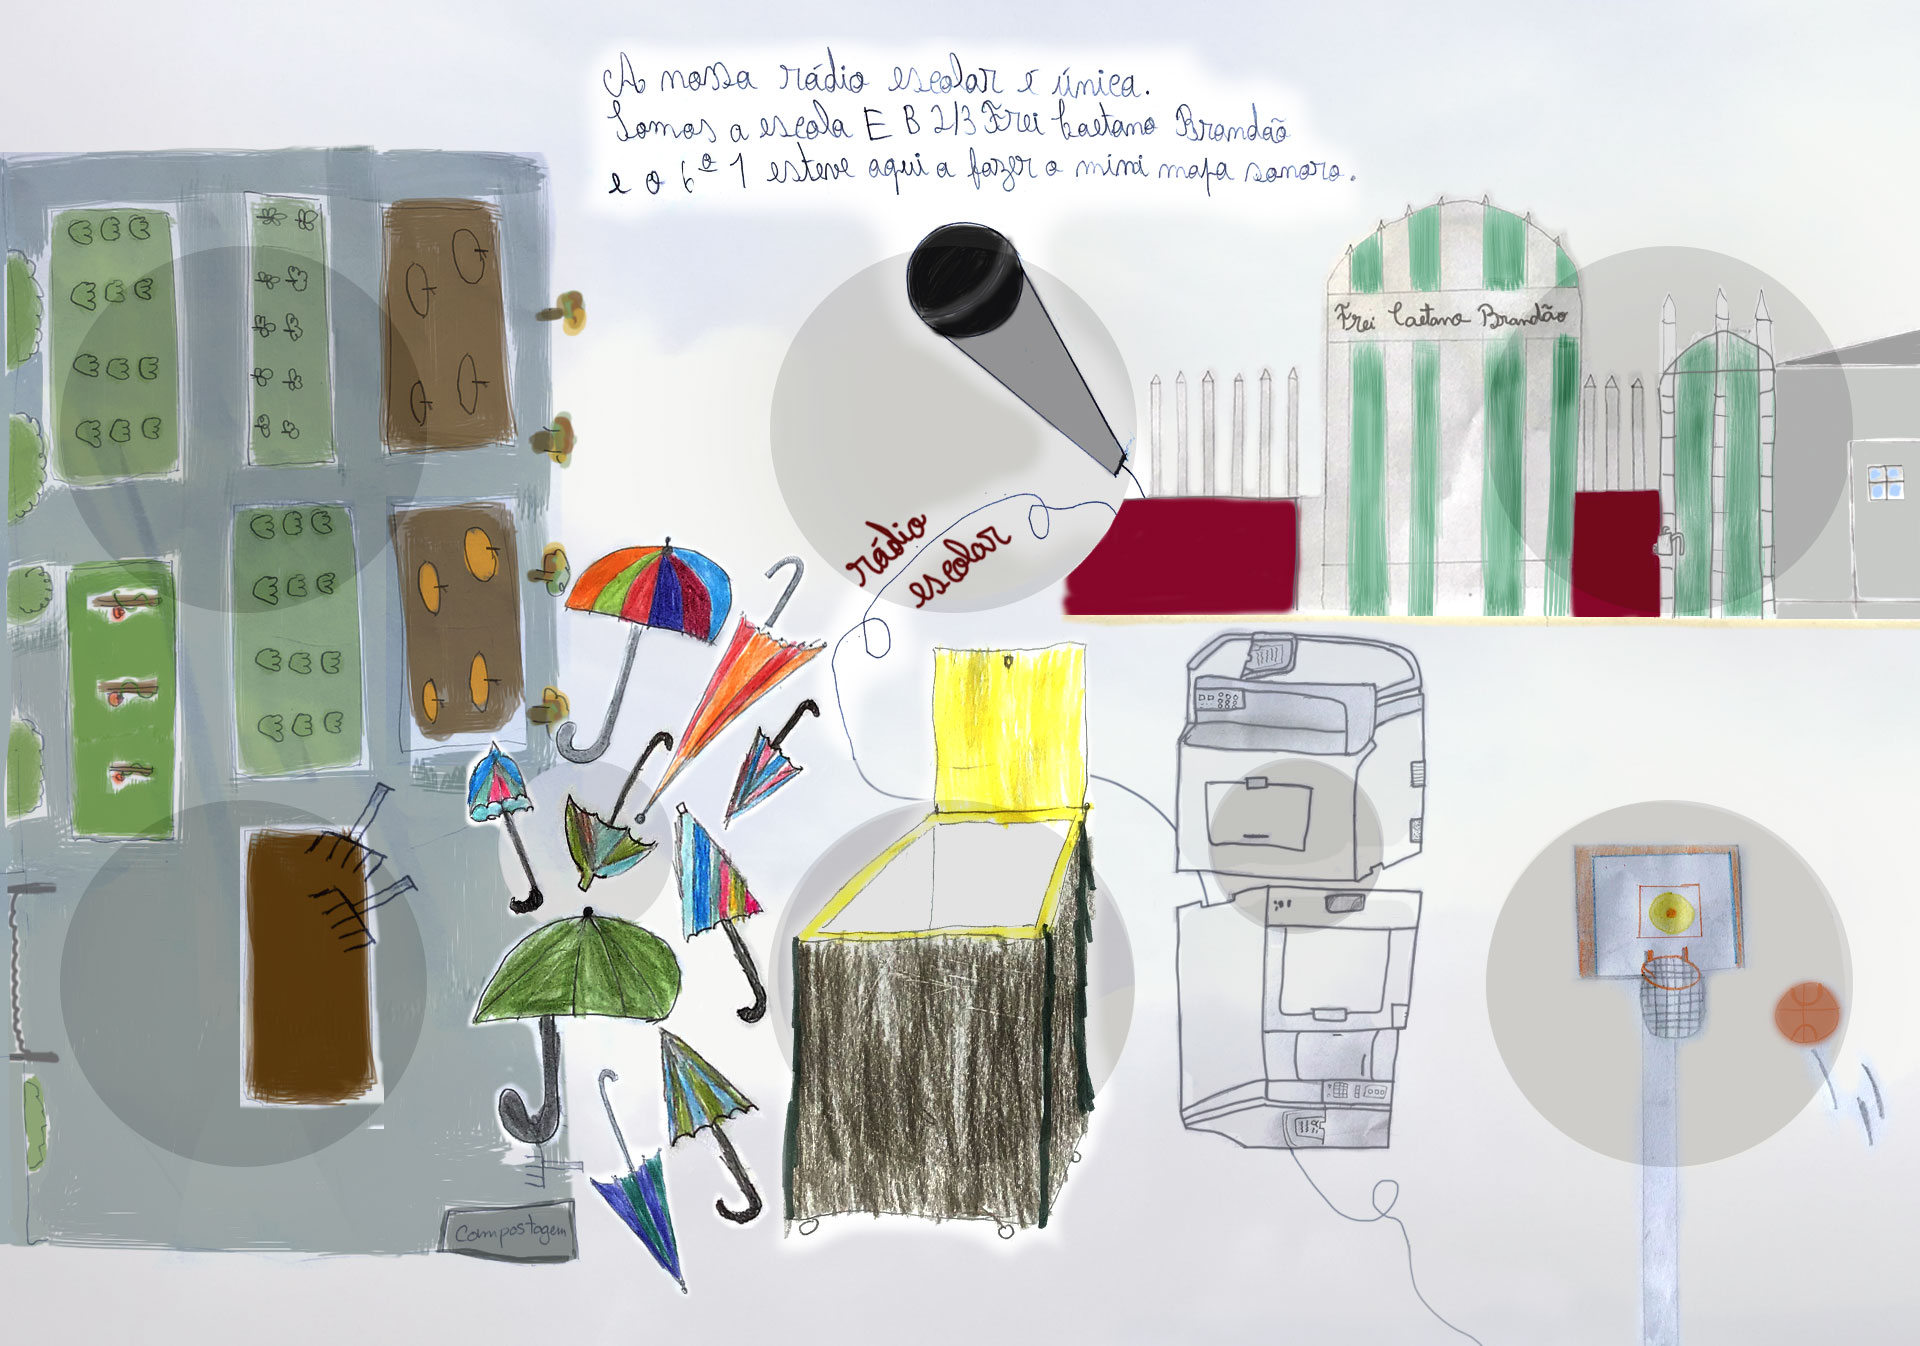 A nossa rádio escolar é única.
Somos a escola E B 2/3 Frei Caetano Brandão
e o 6º 1 esteve aqui a fazer o mini mapa sonoro.
Frei Caetano Brandão
rádio
escolar
Compostagem